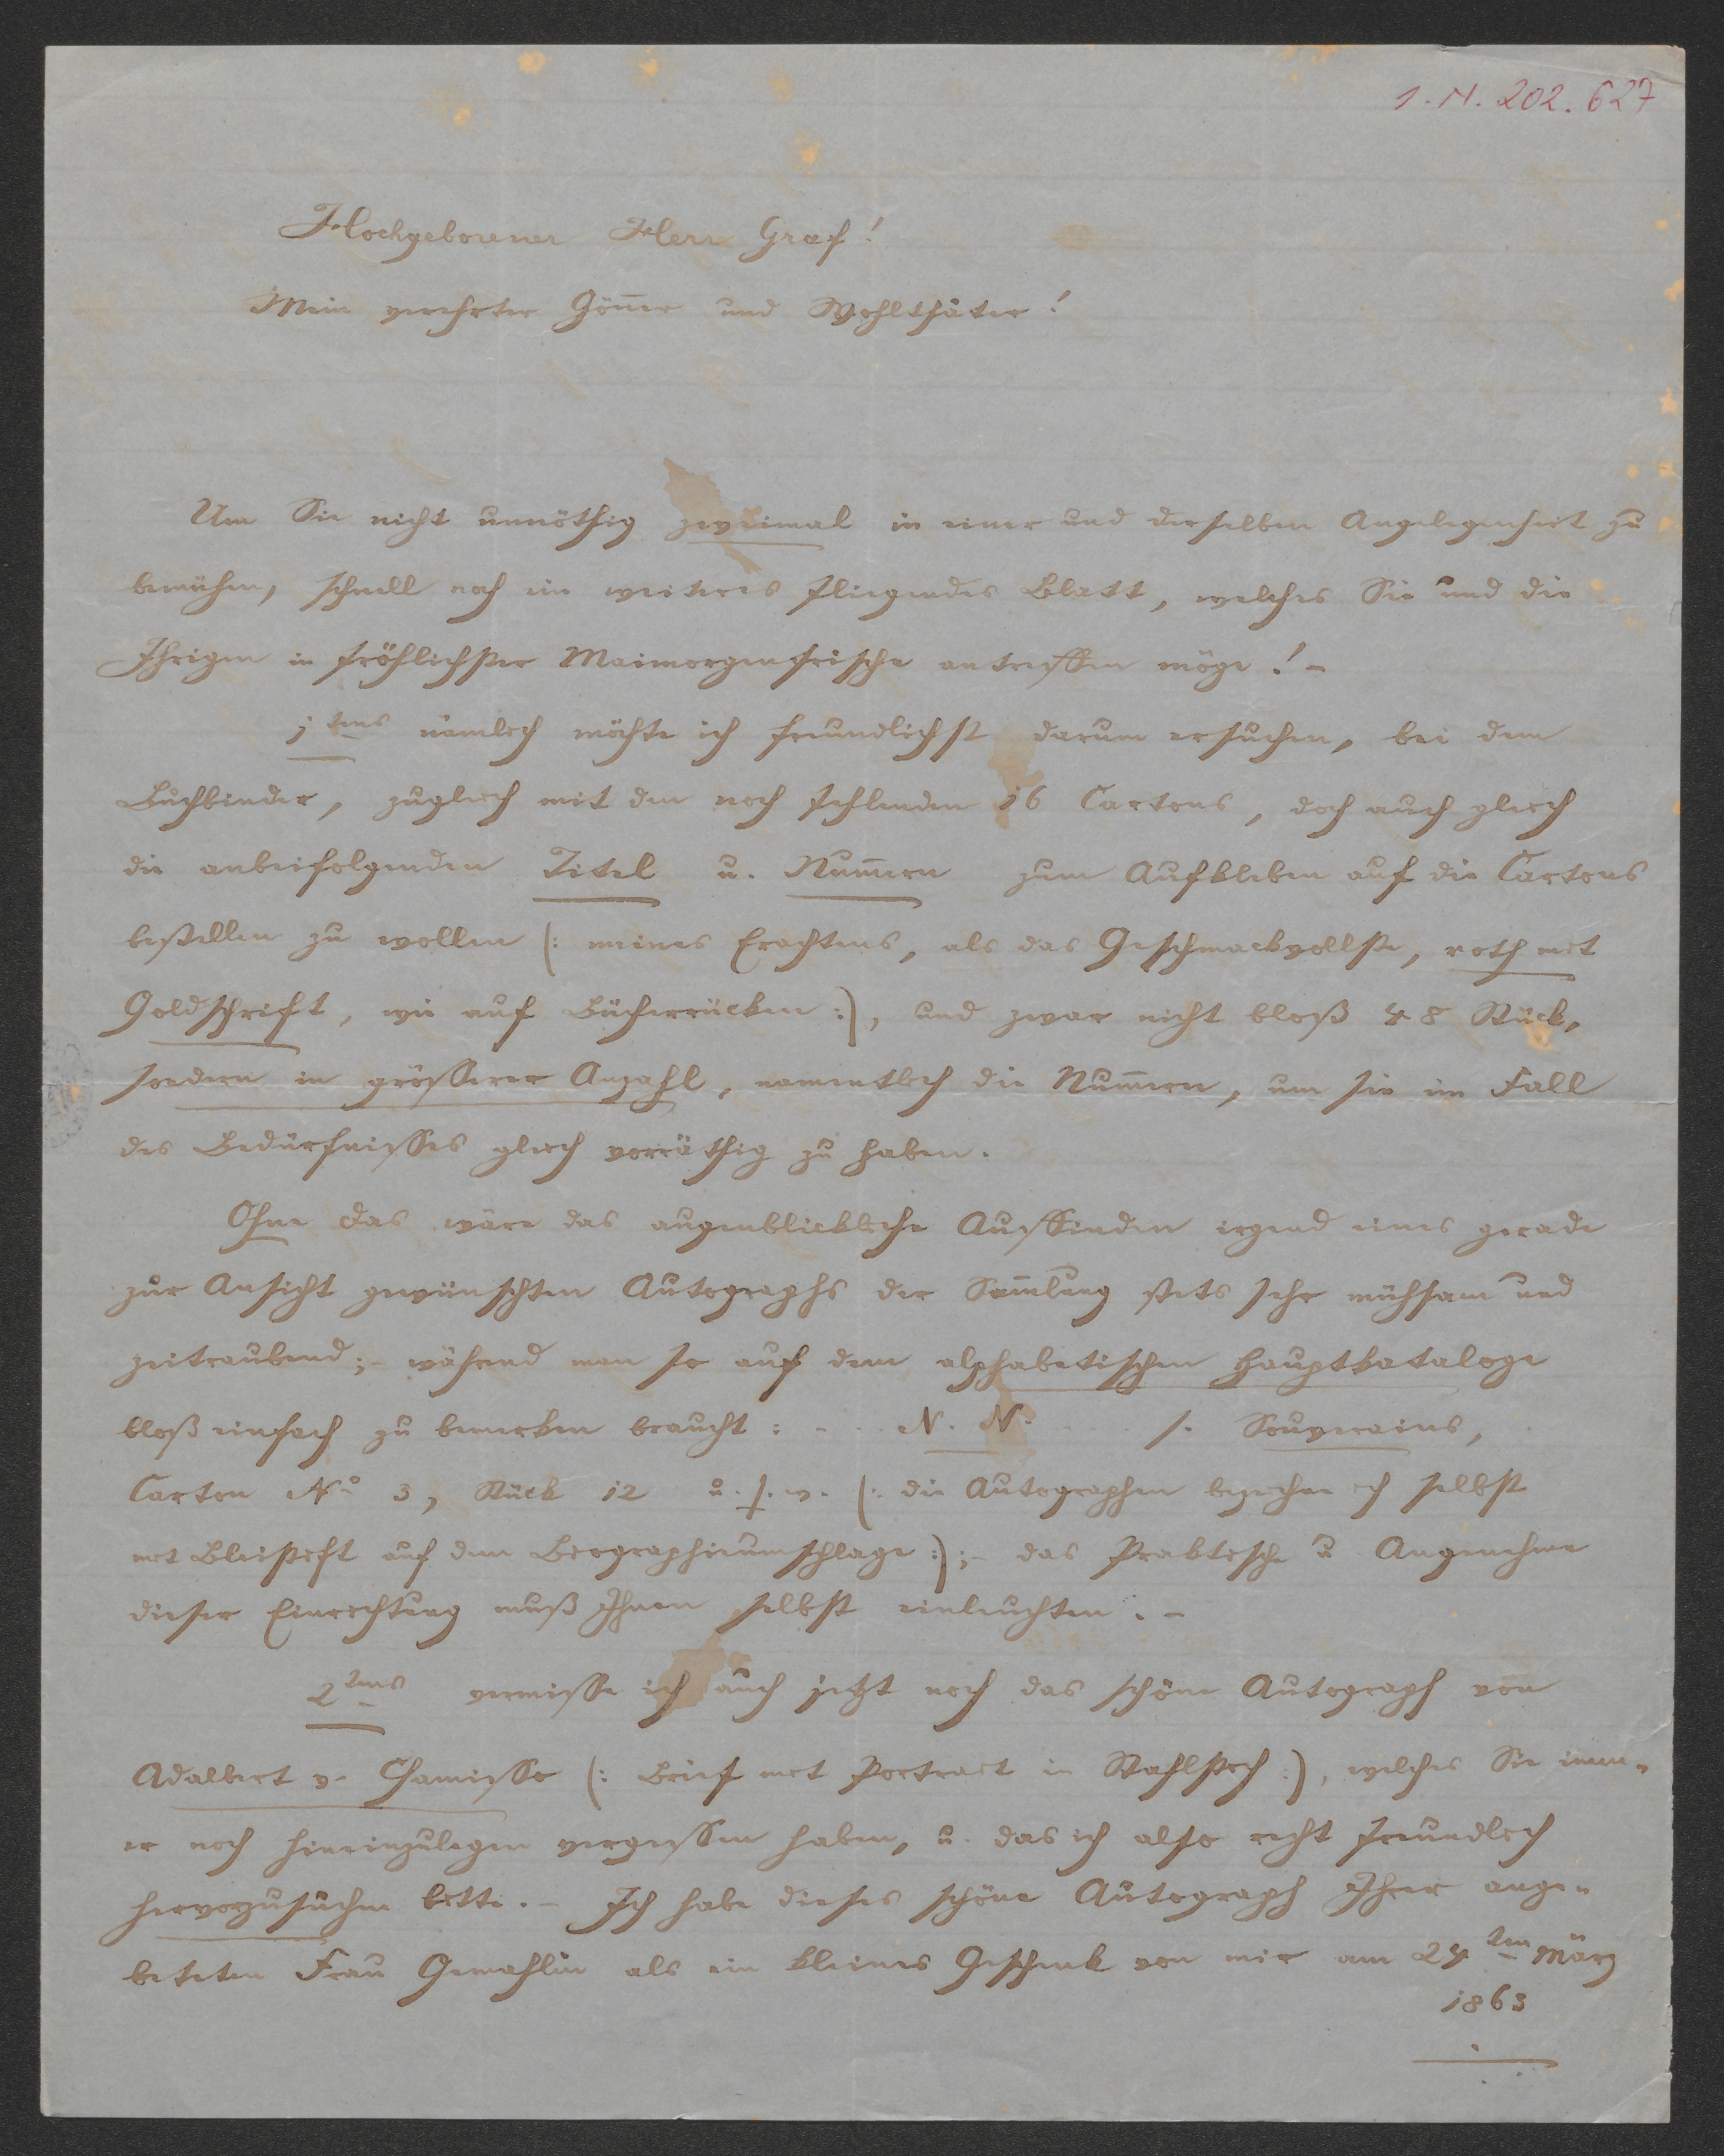 I. N. 202.627
Hochgeborener Herr Graf!
Mein verehrter Gön̄er und Wohlthäter!
Um Sie nicht unnöthig zweimal in einer und derselben Angelegenheit zu
bemühen, schnell noch ein weiteres fliegendes Blatt, welches Sie und die
Ihrigen in fröhlichster Maimorgenfrische antreffen möge! –
1tens nämlich möchte ich freundlichst darum ersuchen, bei dem
Buchbinder, zugleich mit den noch fehlenden 16 Cartons, doch auch gleich
die anbeifolgenden Titel u. Num̄ern zum Aufkleben auf die Cartons
bestellen zu wollen (: meines Erachtens, als das Geschmackvollste, roth mit
Goldschrift, wie auf Bücherrücken :), und zwar nicht bloß 48 Stück,
sondern in grösserer Anzahl, namentlich die Num̄ern, um sie im Fall
des Bedürfnisses gleich vorräthig zu haben.
Ohne das wäre das augenblickliche Auffinden irgend eines gerade
zur Ansicht gewünschten Autographs der Sam̄lung stets sehr mühsam und
zeitraubend; – während man so auf dem alphabetischen Hauptkataloge
bloß einfach zu bemerken braucht: - . . N. N. . . s. Souverains,
Carton No 3, Stück 12 u. s. w. (: die Autographen bezeichne ich selbst
mit Bleistift auf dem Biographieumschlage :); – das Praktische u Angenehme
dieser Einrichtung muß Ihnen selbst einleuchten. –
2tens vermisse ich auch jetzt noch das schöne Autograph von
Adalbert v. Chamisso (: Brief mit Portrait in Stahlstich :), welches Sie imm-
er noch hineinzulegen vergessen haben, u. das ich also recht freundlich
hervorzusuchen bitte. – Ich habe dieses schöne Autograph Ihrer ange-
beteten Frau Gemahlin als ein kleines Geschenk von mir am 24ten März
1863